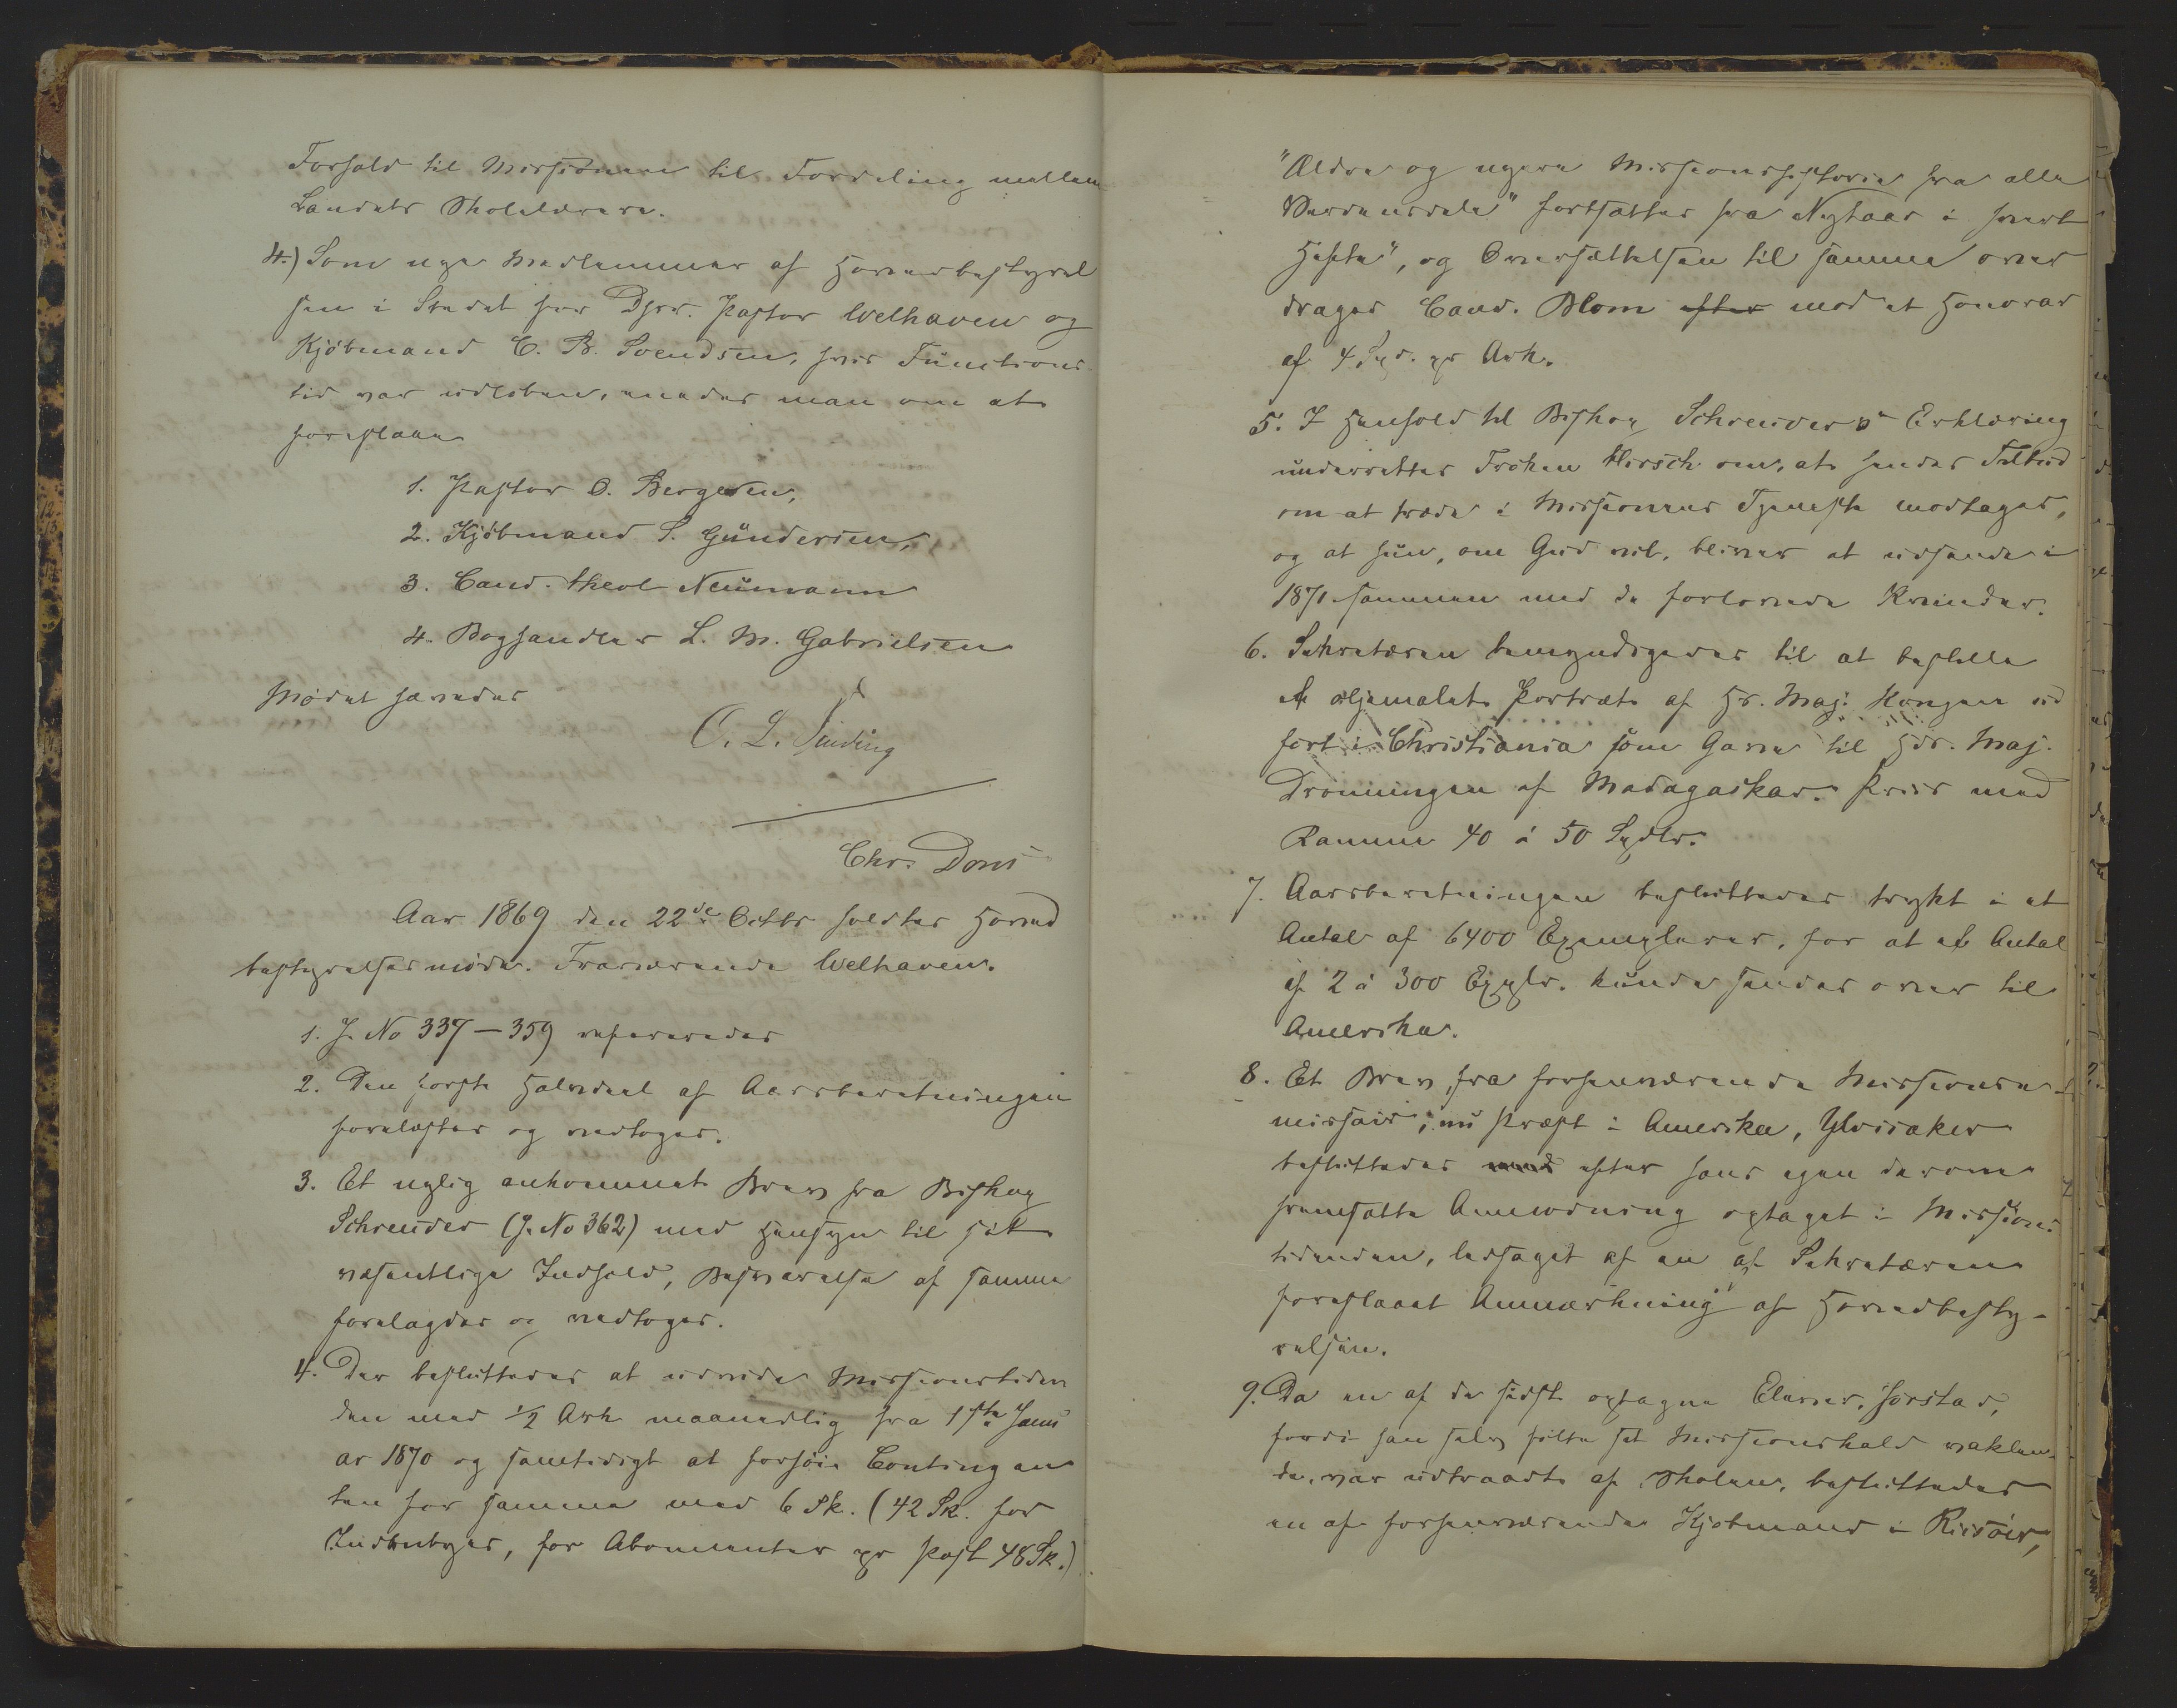 Forhold til Missionen til Fordeling mellem
Landets Skolelærere.
4.) Som nye Medlemmer af Hovedbestyrel
sen i Stedet for DHrr. Pastor Welhaven og
Kjöbmand C. B. Svendsen, hvis Functions-
tid var udløben, enedes man om at
foreslaae
1. Pastor O. Bergesen,
2. Kjöbmand S. Gundersen,
3. Cand. theol Neumann
4. Boghandler L. M. Gabrielsen
Mödet hævedes
O. L. Sinding
Chr. Dons
Aar 1869 den 22de Octbr holdtes Hoved
bestyrelsesmöde. Fraværende Welhaven.
1. J. No 337 – 359 refereredes
2. Den første Halvdeel af Aarsberetningen
forelæstes og vedtoges.
3. Et nylig ankommet Brev fra Biskop
Schreuder (J. No 362) med Hensyn til sit
væsentlige Indhold, Besvarelse af samme
forelagdes og vedtoges.
4. Der besluttedes at udvide Missionstiden
den med ½ Ark maanedlig fra 1ste Janu
ar 1870 og samtidigt at forhöie Contingen
ten for samme med 6 Sk. (42 Sk. for
Indenbyes, for Abonnenter pr Post 48 Sk.)
"Ældre og nyere Missionshistorie fra alle
Verdensdele" fortsættes fra Nytaar i hvert
Hefte", og Oversættelsen til samme over
drages Cand. Blom efter mod et Honorar
af 4 Spd. pr Ark.
5. I Henhold til Biskop Schreuders Erklæring
underrettes Fröken Hirsch om, at hendes Tilbud
om at træde i Missionens Tjeneste modtages,
og at hun, om Gud vil, bliver at udsende i
1870 sammen med de forlovede Kvinder.
6. Sekretæren bemyndigedes til at bestille
et oljemalet Portræt af Hs. Maj. Kongen ud
fört i Christiania som Gave til Hds. Maj.
Dronningen af Madagaskar. Priis med
Ramme 40 à 50 Spdlr.
7. Aarsberetningen besluttedes trykt i et
Antal af 6400 Exemplarer, for at et Antal
af 2 à 300 Explr. kunde sendes over til
Amerika.
8. Et Brev fra forhenværende Missionse-
missair, nu Præst i Amerika, Ylvisaker
besluttedes med efter hans egen derom
fremsatte Anmodning optaget i Missions
tidenden, ledsaget af en af Sekretæren
foreslaaet Anmærkning af Hovedbesty-
relsen.
9. Da en af de sidst optagne Elever, Hörstad,
fordi han selv fölte sit Missionskald vaklen
de, var udtraadt af Skolen, besluttedes
en af forhenværende Kjöbmand i Riisöer,